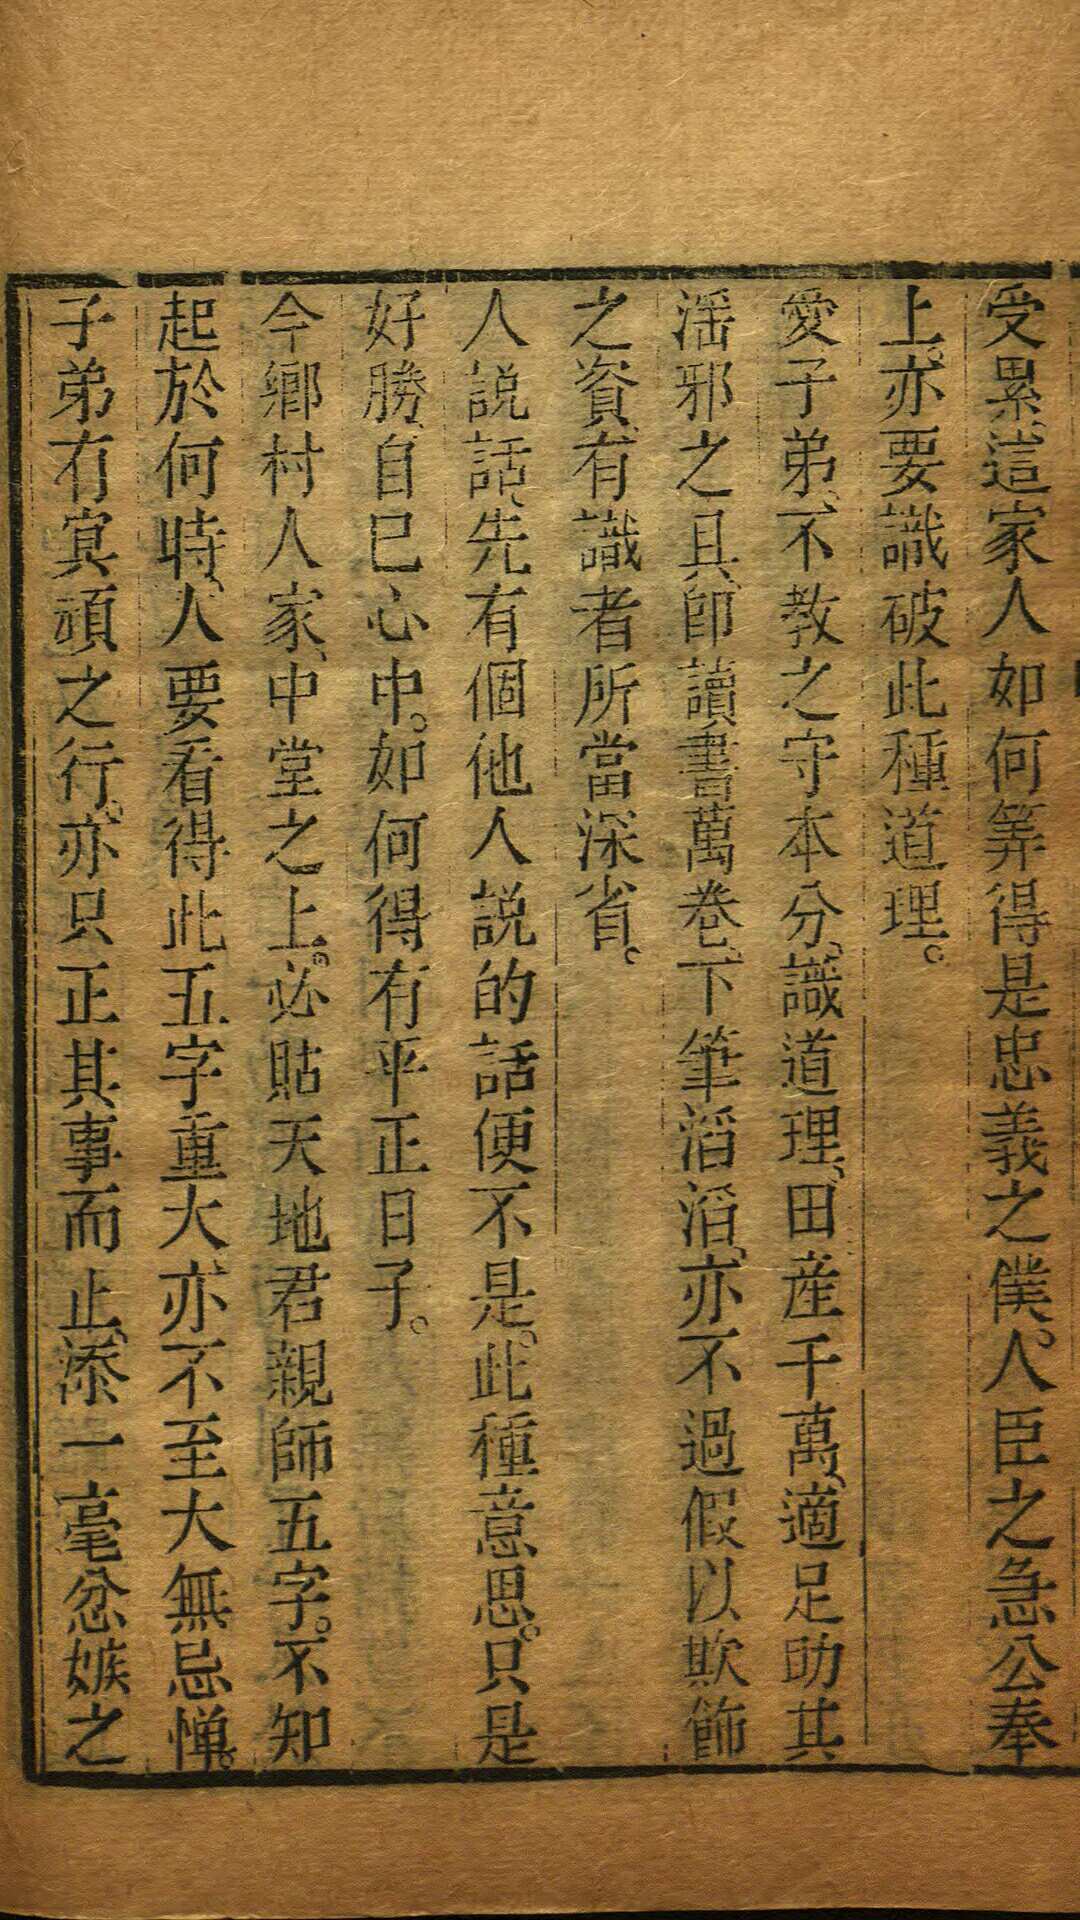 受累、這家人如何筭得是忠義之僕。人臣之急公奉
上、亦要識破此種道理。
愛子弟、不教之守本分、識道理、田産千萬、適足助其
滛邪之具、卽讀書萬卷、下筆滔滔、亦不過假以欺飾
之資、有識者所當深省。
人説話、先有個他人説的話便不是。此種意思。只是
好勝、自已心中。如何得有平正日子。
今鄉村人家、中堂之上。必貼天地君親師五字。不知
起於何時、人要看得此五字重大、亦不至大無忌憚。
子弟有冥頑之行。亦只正其事而止、添一毫忿嫉之